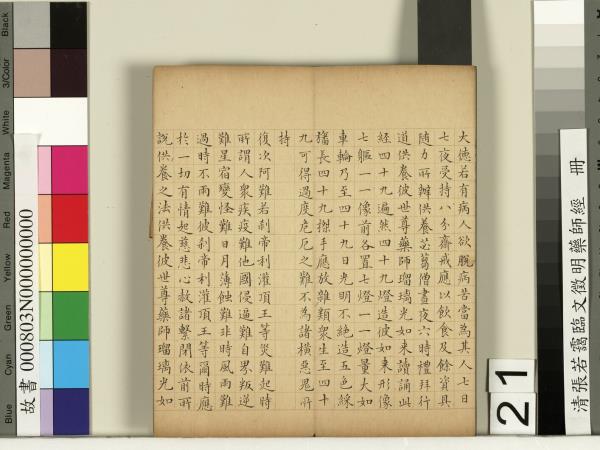 大德若有病人欲脫病苦當為其人七日
七夜受持八分齋戒應以飲食及餘資具
隨力所辦供養苾蒭僧晝夜六時禮拜行
道供養彼世尊藥師瑠璃光如來讀誦此
經四十九遍然四十九燈造彼如來形像
七軀一一像前各置七燈一一燈量大如
車輪乃至四十九日光明不絕造五色綵
旛長四十九搩手應放雜類衆生至四十
九可得過度危厄之難不為諸橫惡鬼所
持
復次阿難若剎帝利灌頂王等災難起時
所謂人衆疾疫難他國侵逼難自界叛逆
難星宿變怪難日月薄蝕難非時風雨難
過時不雨難彼剎帝利灌頂王等爾時應
於一切有情起慈悲心赦諸繫閉依前所
說供養之法供養彼世尊藥師瑠璃光如
清張若靄臨文徵明藥師經 冊
21
故書 000803N000000000
Black
3/Color
White
Magenta
Red
Yellow
Green
Cyan
Blue